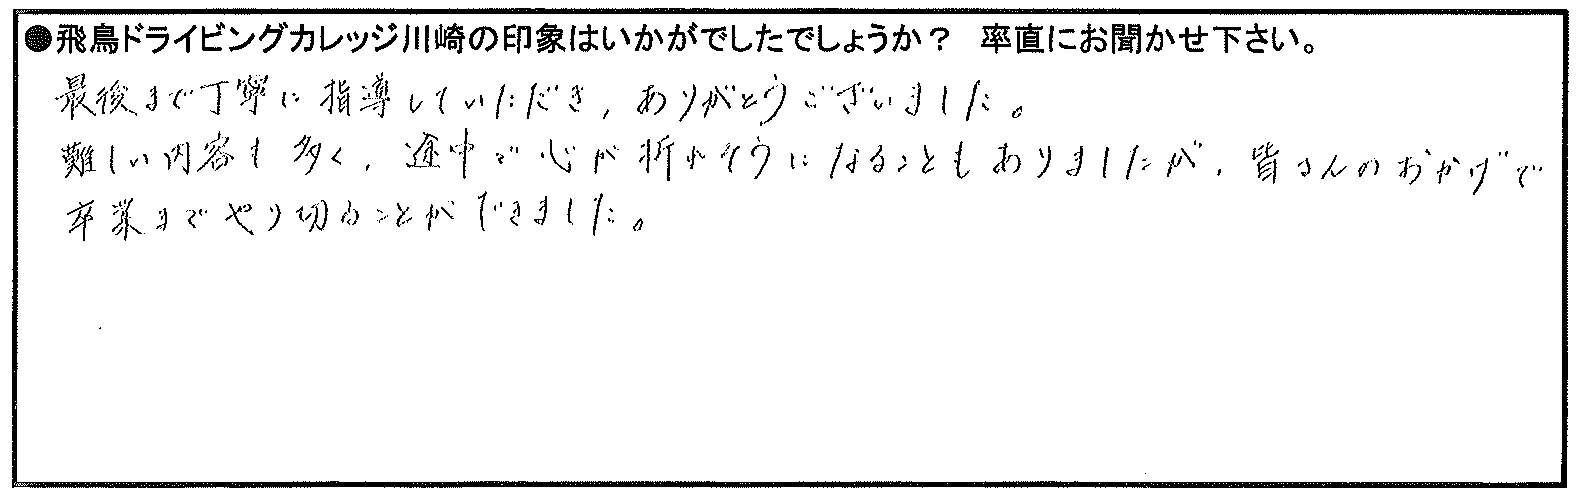 ●飛鳥ドライビングカレッジ川崎の印象はいかがでしたでしょうか？ 率直にお聞かせ下さい。
最後まで丁寧に指導していただき、ありがとうございました。
難しい内容も多く、途中で心が折れそうになることもありましたが、皆さんのおかげで
卒業までやり切ることができました。